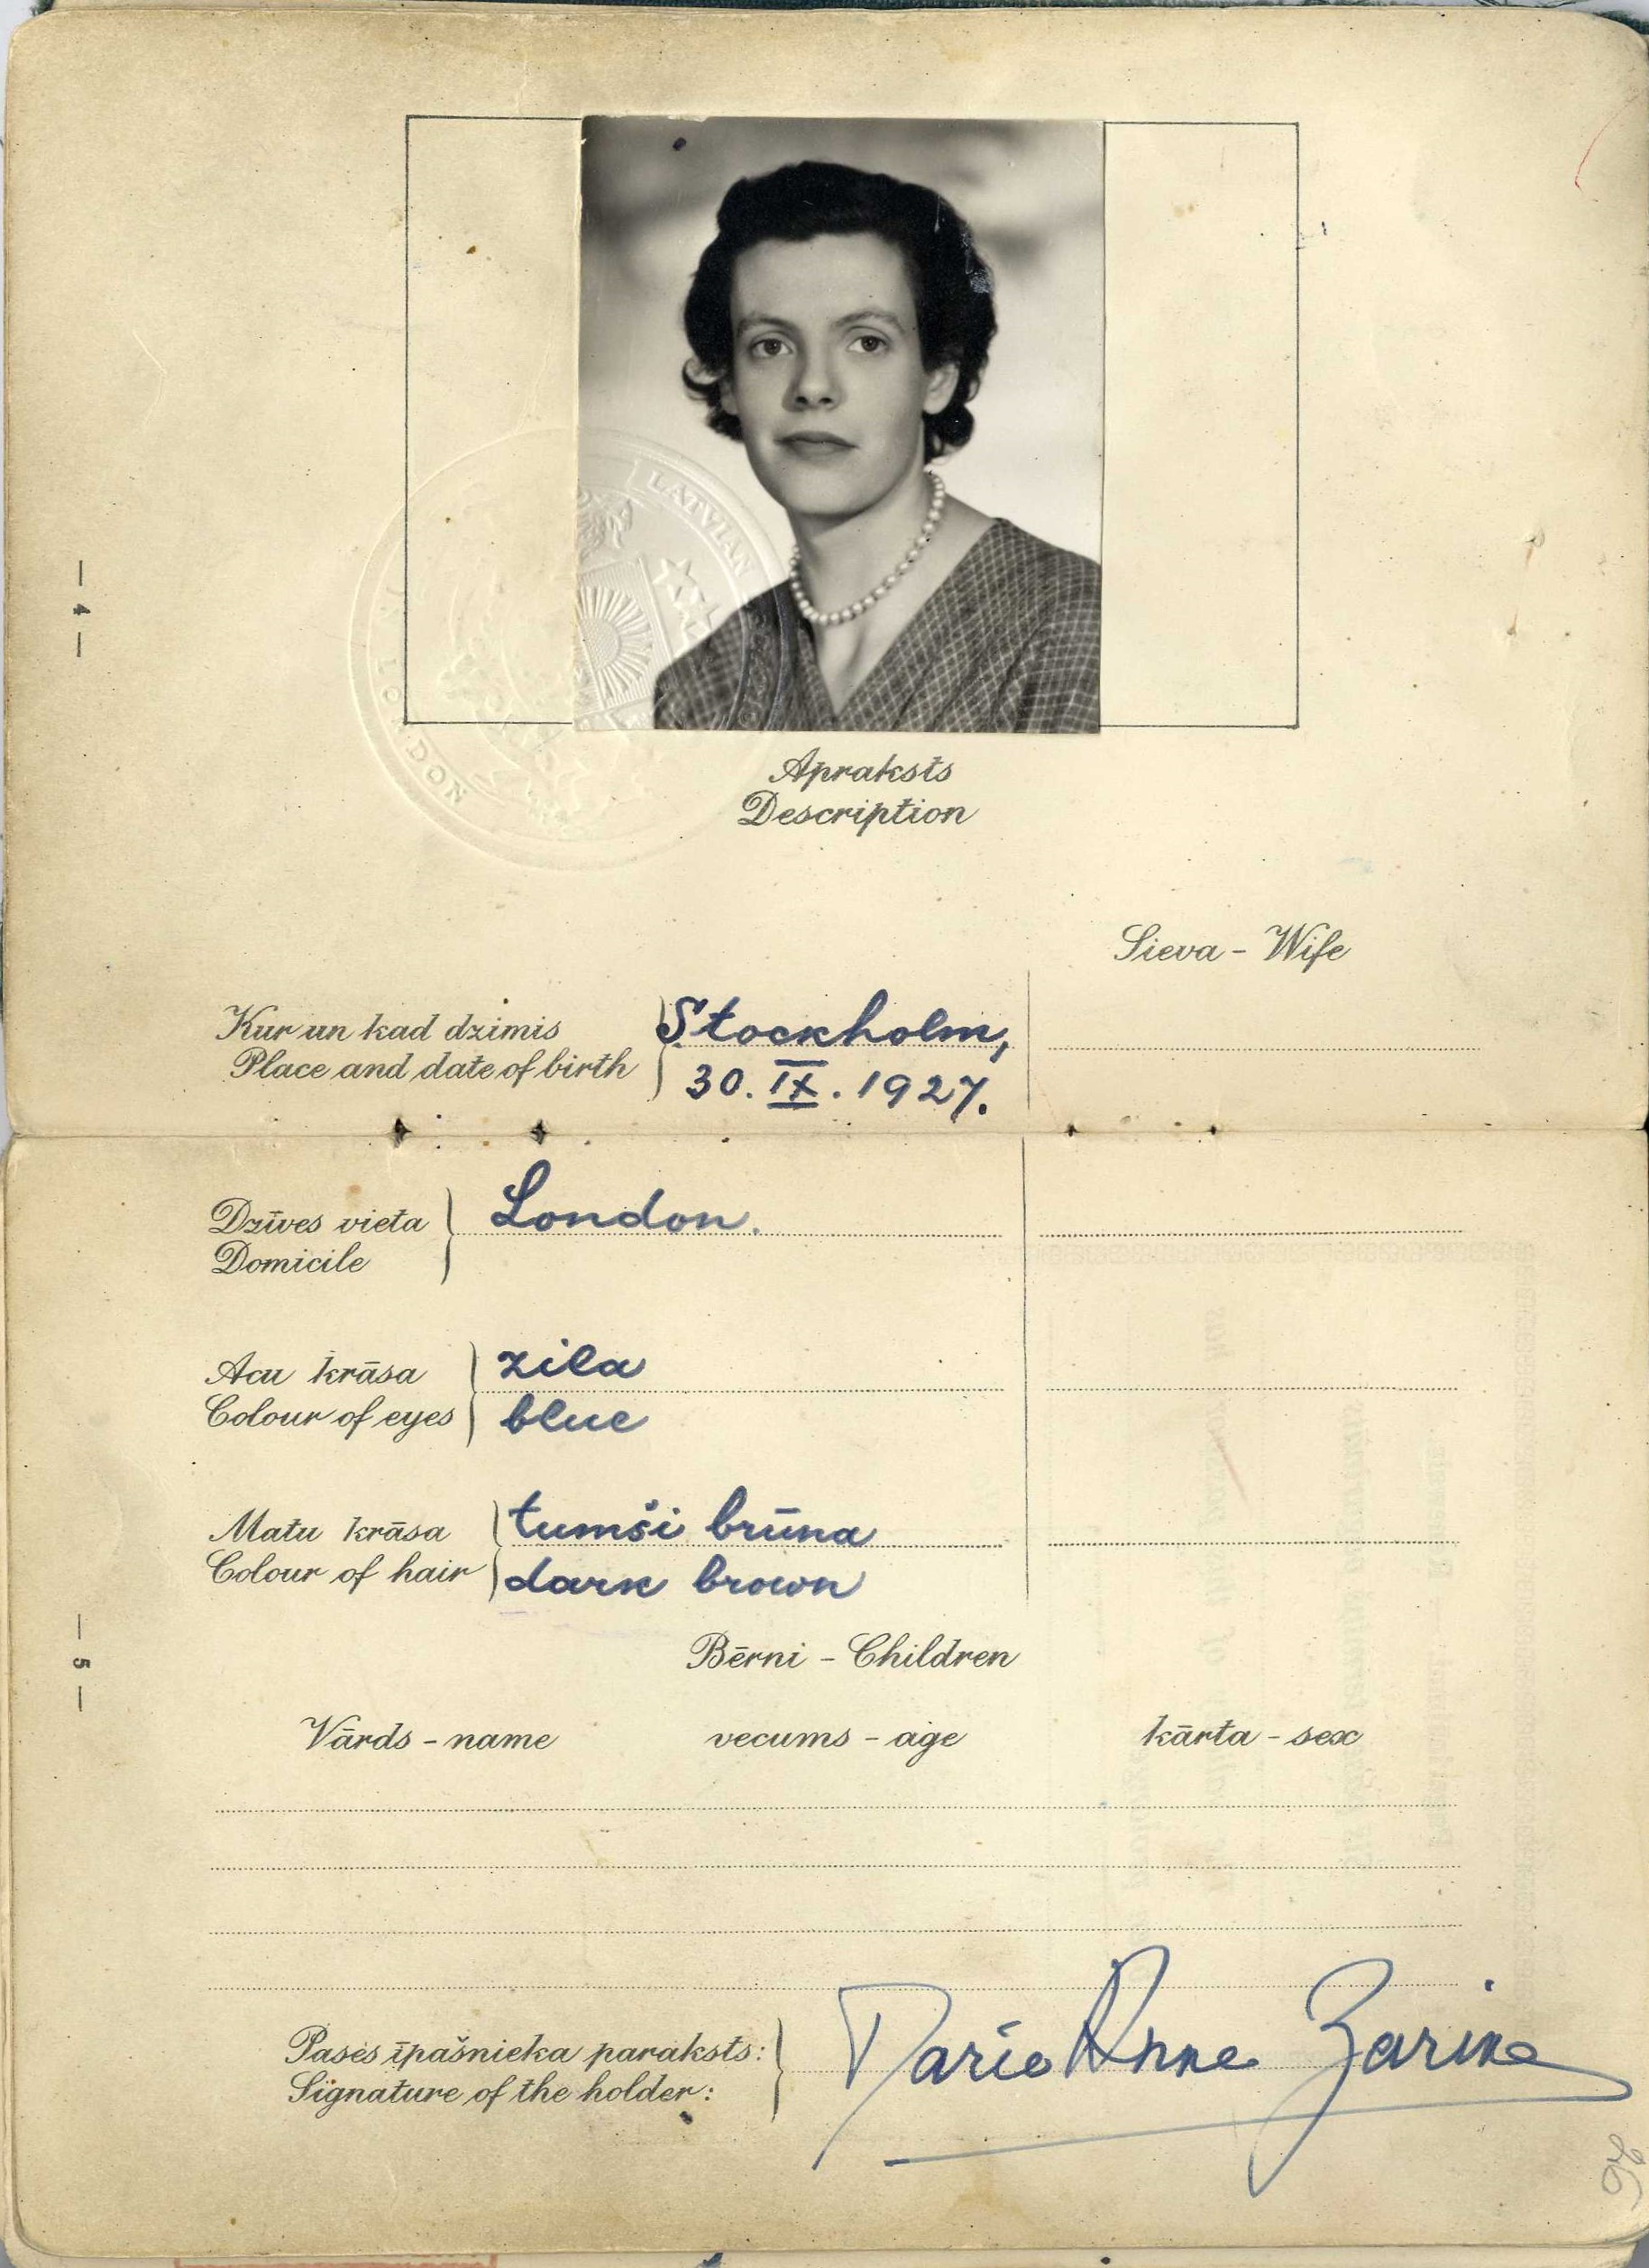 LATVIAN
LONDON
— 4 —
Apraksts
Description
Sieva - Wife
Kur un kad dzimis
Place and date of birth
Stockholm,
30. IX. 1927.
Dzīves vieta
Domicile
London.
Acu krāsa
Colour of eyes
zila
blue
Matu krāsa
Colour of hair
tumši brūna
dark brown
— 5 —
Bērni - Children
Vārds - name vecums - age kārta - sex
Pases īpašnieka paraksts:
Signature of the holder:
Marie Anne Zarine